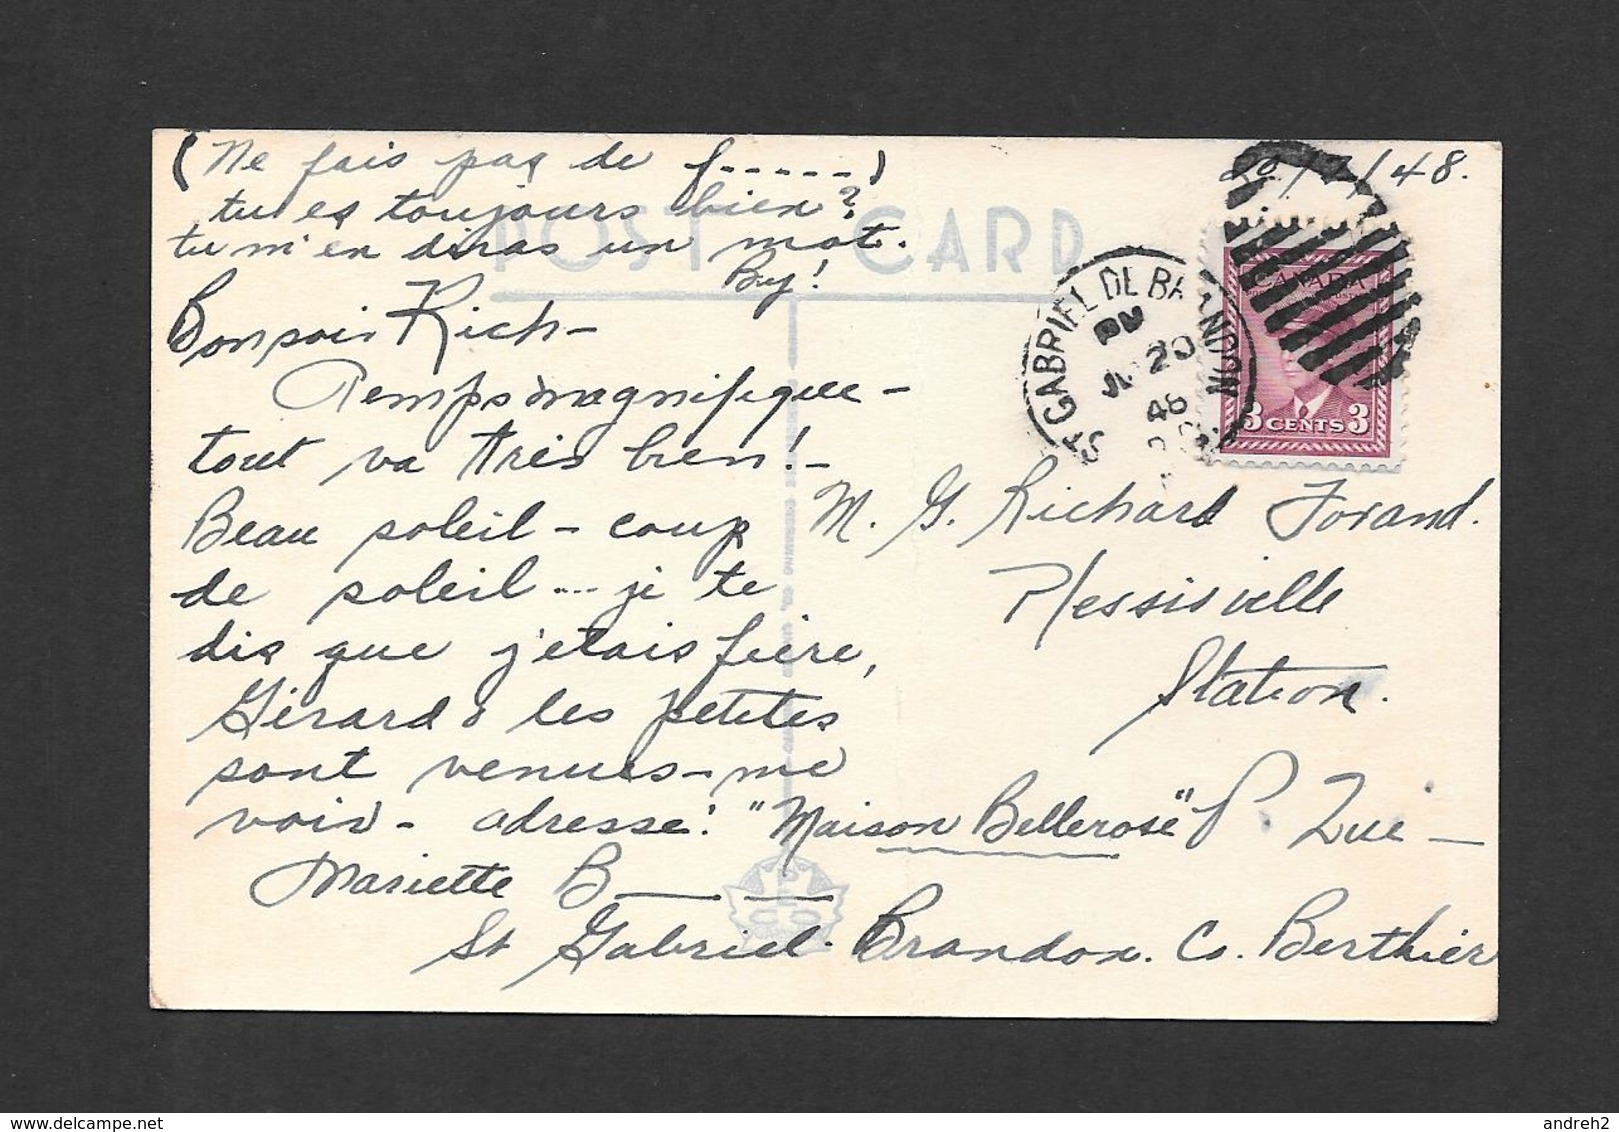 (Ne fais pas de f......)
tu es toujours bien?
tu m'en diras un mot.
By!
POST CARD
20/ /48.
ST GABRIEL DE BRANDON
PM
20
48
CANADA
3 CENTS 3
Bonsoir Rich –
Temps magnifique –
tout va très bien! –
Beau soleil – coup
de soleil ... je te
dis que j'étais fière,
Gérard & les petites
sont venues – me
voir – adresse: "Maison Bellerose"
Mariette B
St Gabriel Brandon. Co. Berthier
M. G. Richard Forand.
Plessisville
Station.
P. Qué –
andreh2